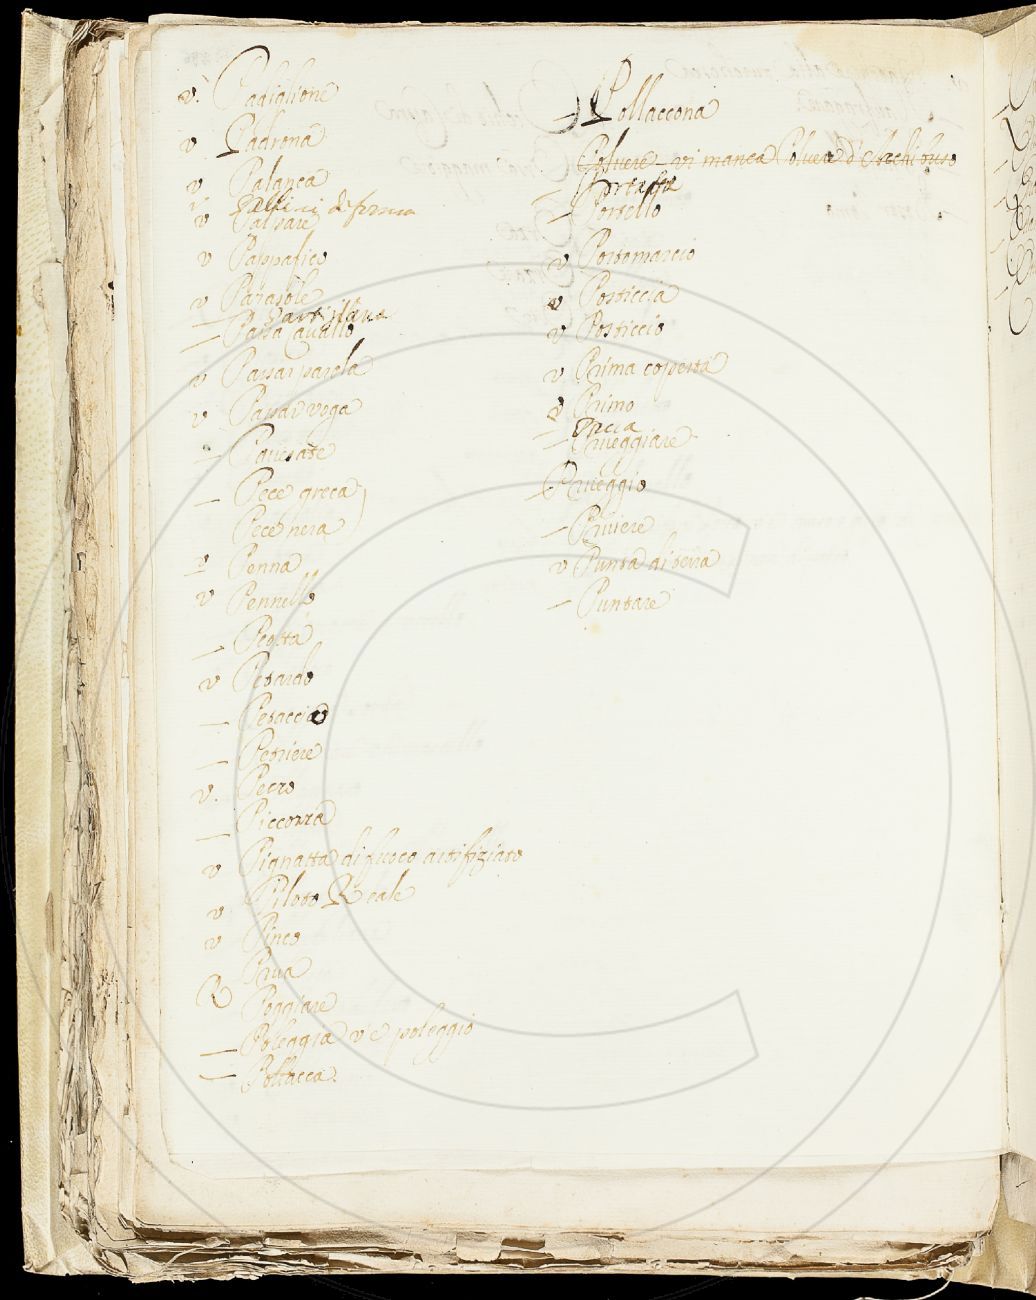 v. Padiglione
v Padrona
v Palanca
v Palpare
v Pappafico
v Parasole
— Partisana
— Passa Cavallo
v Passar parola
v Passar voga
— Pavesate
— Pece greca
Pece nera
v Penna
v Pennello
— Peotta
v Petardo
— Petaccio
— Petriere
v. Pezzo
— Piccozza
v Pignatta di fuoco artifiziato
v Piloto Reale
v Pinco
Prua
Poggiare
— Poleggia v è poleggio
— Pollacca.
— Pollaccona
Polvere – vi manca Polvere d'Archibuso
— Portata
— Portello
v Portamarcio
v Posticcia
v Posticcio
v Prima coperta
v Primo
— Priveggiare
Priveggio
— Priviere
v Punta di terra
— Puntare